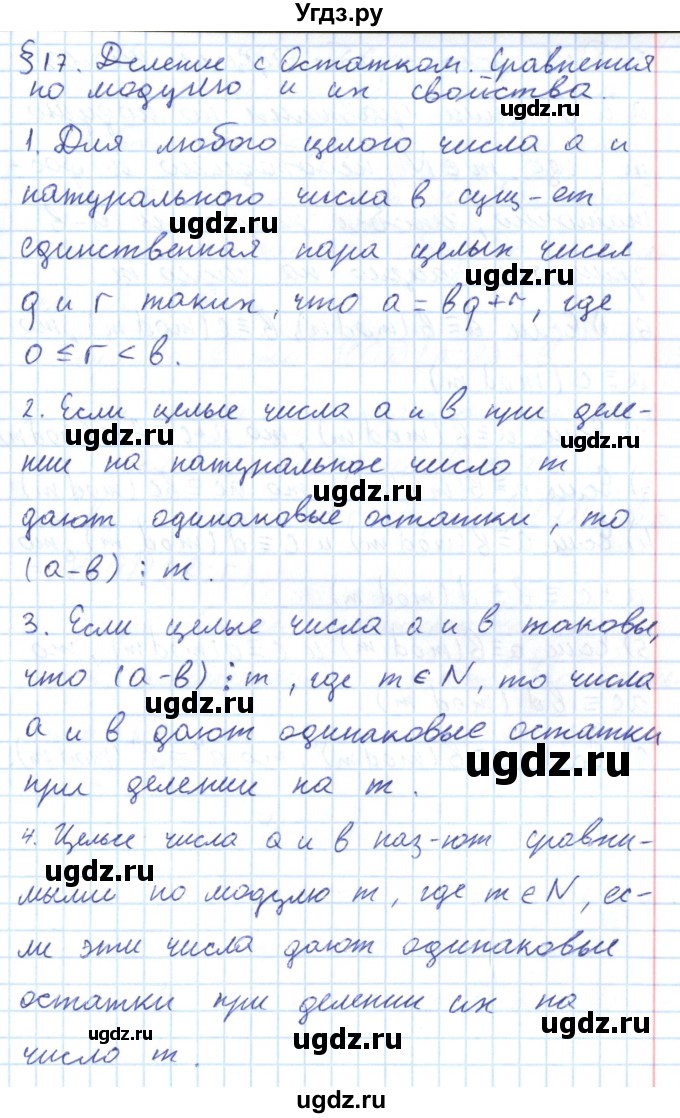 Угдз.ру
§17. Деление с Остатком. Сравнения
по модулю и их свойства.
ugdz.ru
1. Для любого целого числа а и
натурального числа в сущ-ет
ugdz.ru
единственная пара целых чисел
ugdz.ru
q и r таких, что a = вq + r, где
0 ≤ r < в.
2. Если целые числа а и в при деле-
ugdz.ru ugdz.ru
нии на натуральное число m
ugdz.ru
дают одинаковые остатки, то
(а-в) ⋮ m.
3. Если целые числа а и в таковы,
что (а-в) ⋮ m, где m ∈ N, то числа
ugdz.ru
а и в дают одинаковые остатки
ugdz.ru
при делении на m.
4. Целые числа а и в наз-ют сравни-
ugdz.ru
мыми по модулю m, где m ∈ N, ес-
ли эти числа дают одинаковые
остатки при делении их на
ugdz.ru ugdz.ru
число m.
ugdz.ru